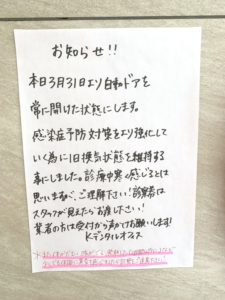 お知らせ!!
本日3月31日より自動ドアを
常に開けた状態にします。
感染症予防対策をより強化して
いく為に1日換気状態を維持する
事にしました。診療中寒く感じるとは
思いますが、ご理解下さい!診察券は
スタッフが見えたらお渡し下さい!
業者の方は受付から声かけてお願いします!
Kデンタルオフィス